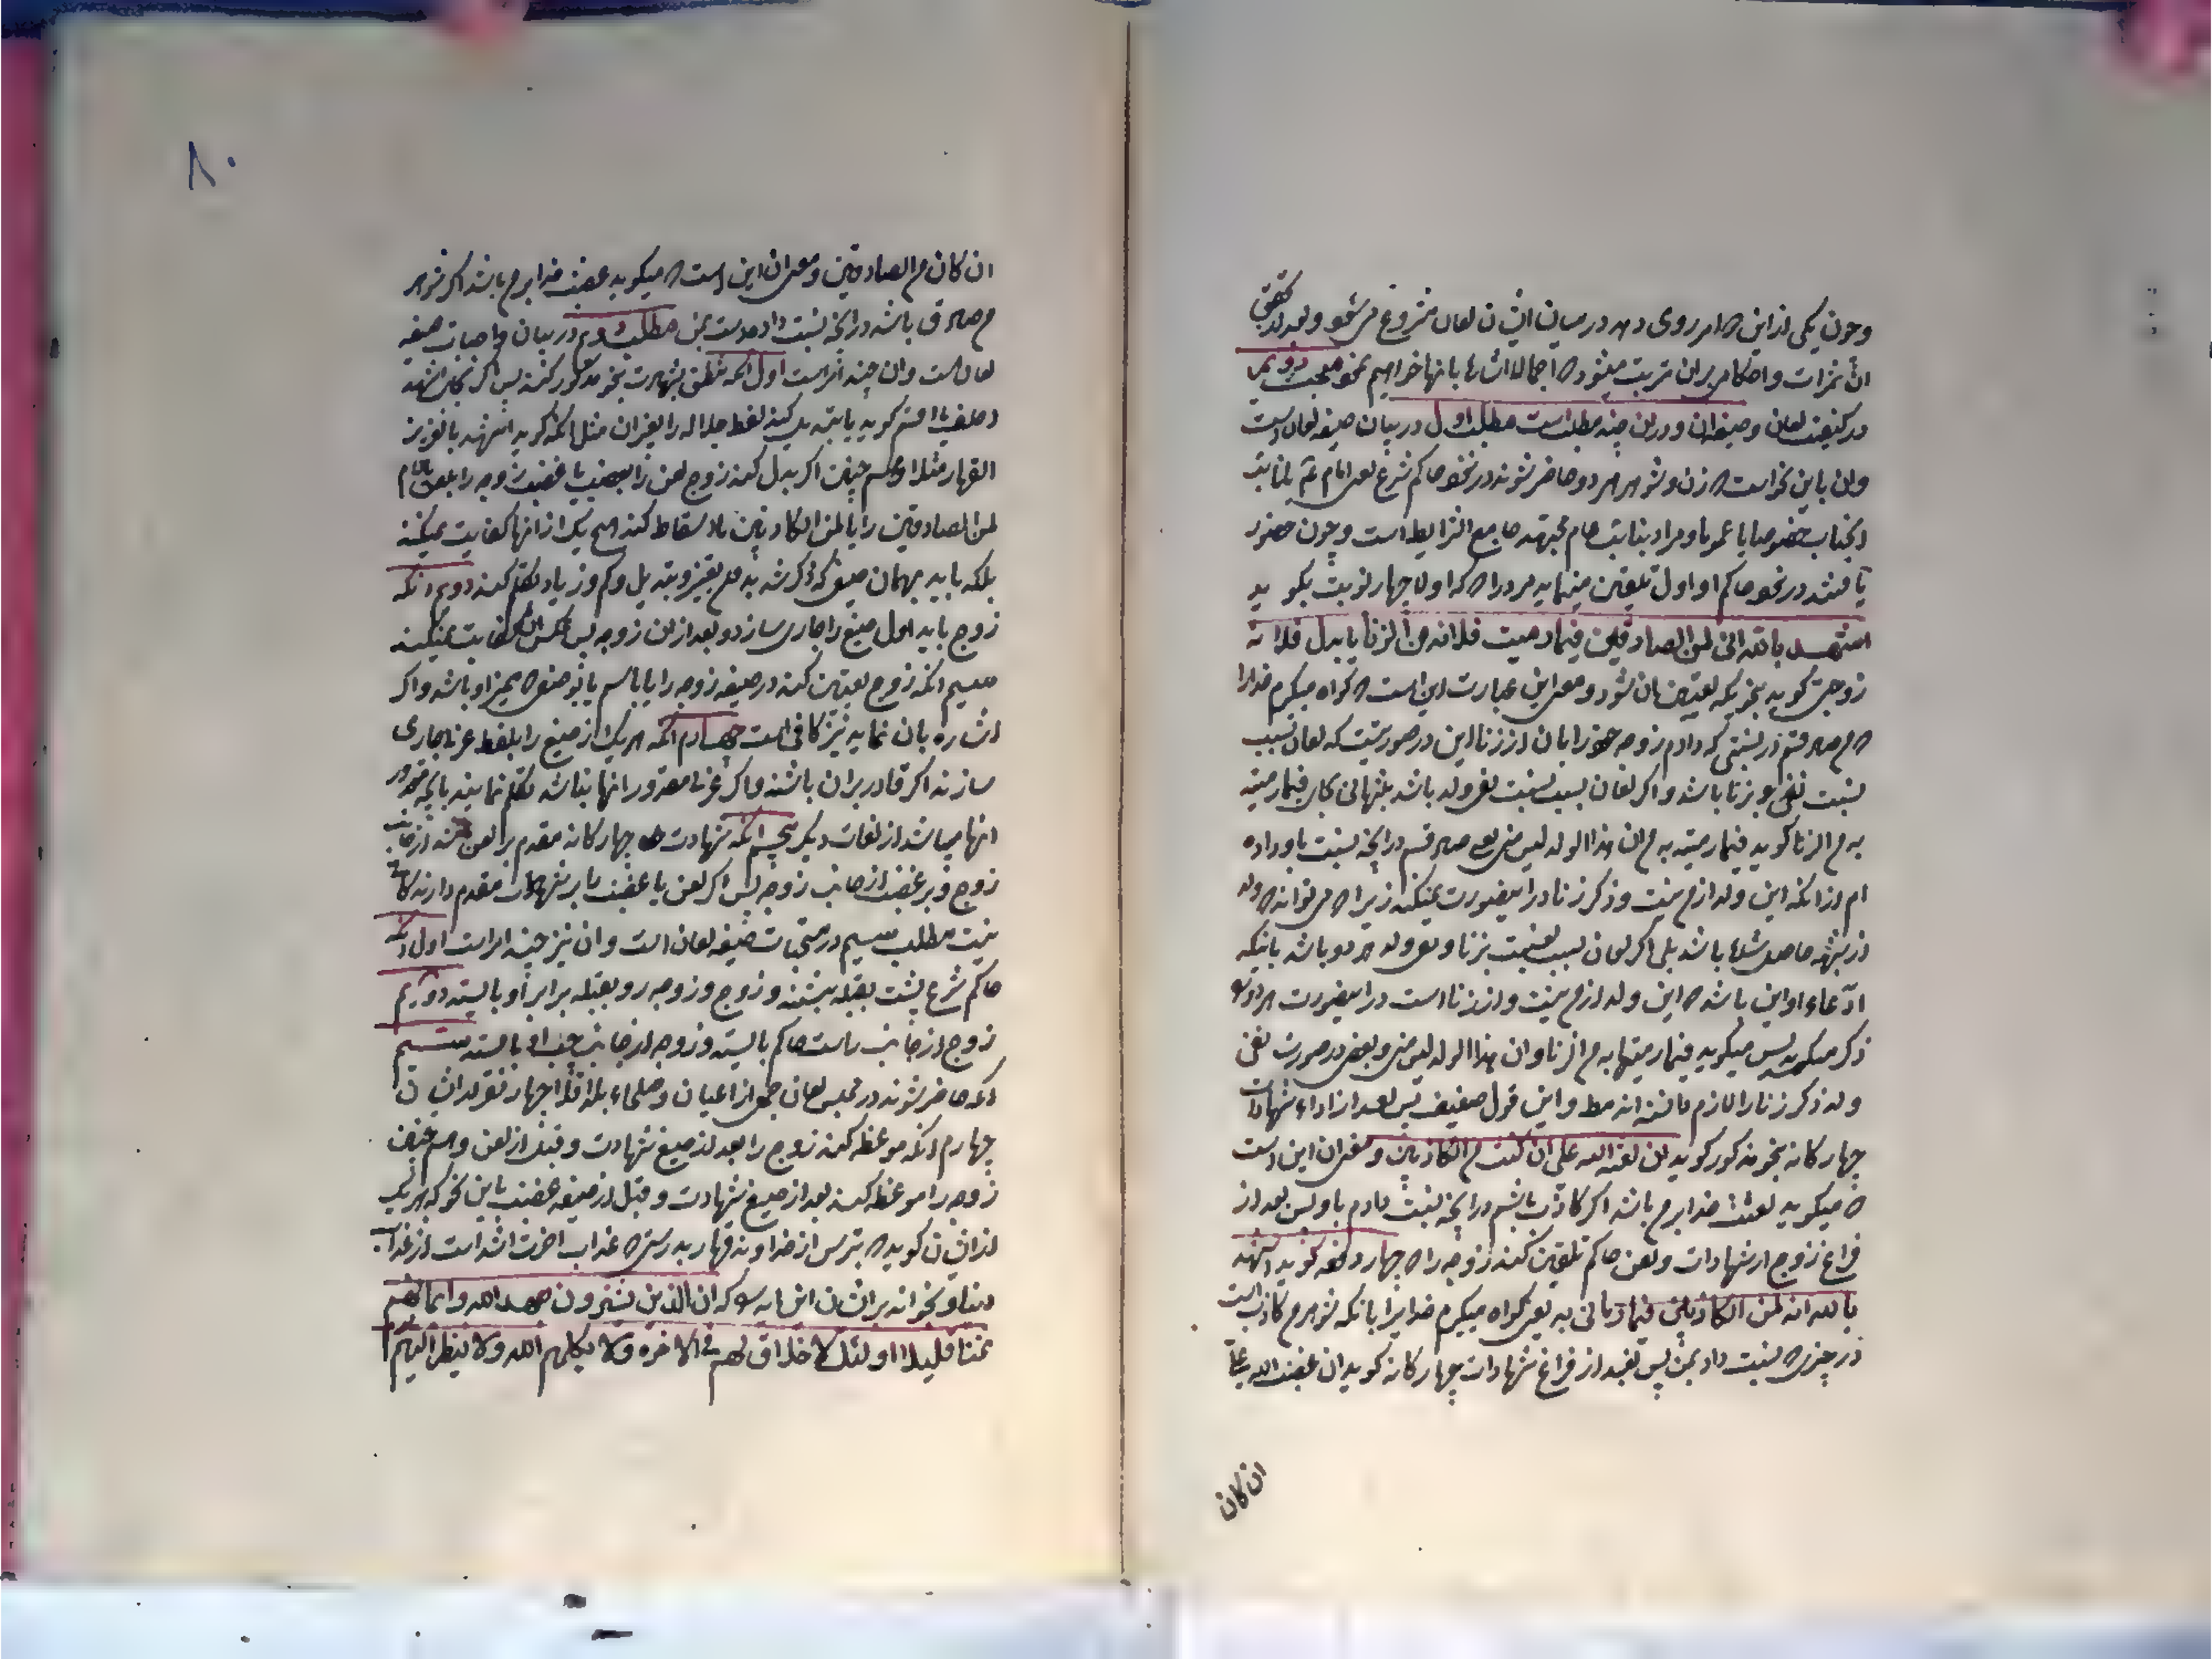 وچون یکی از این دو امر روی دهد در میان ایشان لعان مشروع می شود و بعد از تحقق
آن ثمرات و احکام بر آن مترتب میشود که اجمالا اشاره بانها خواهیم نمود مبحث دویم
در کیفیت لعان و صیغه آن و در آن چند مطلب است مطلب اول در بیان صیغه لعان است
وان باین نحو است که زن و شوهر هر دو حاضر شوند در نحو حاکم شرع یعنی امام یا نایب
انجناب خصوصا یا عموما و مراد بنایب عام مجتهد جامع الشرایط است وچون حضور
یافتند در نحو حاکم او اول تلقین مینماید مرد را که اولا چهار نوبت بگوید
اشهد بالله انی لمن الصادقین فیما رمیت فلانه من الزنا یا بدل فلانه
زوجتی گوید بنحویکه تعیین آن شود و معنی این عبارت این است که گواه میگیرم خدا را
که من صادقم در نسبتی که دادم زوجه خود را بان از زنا این در صورتیست که لعان بسبب
نسبت نفی بزنا باشد و اگر لعان بسبب نسبت نفی ولد باشد بتنهائی بجای فیما رمیته
به من الزنا گوید فیما رمیته به من ان هذا الولد لیس منی یعنی صادقم در آنچه نسبت باو داده
ام از انکه این ولد از من نیست و ذکر زنا در اینصورت نمیکند زیرا که می تواند که ولد
از شبهه حاصل شده باشد بلی اگر لعان بسبب نسبت بزنا و نفی ولد هر دو باشد باینکه
ادعاء او این باشد که این ولد از من نیست و از زنا است در اینصورت هر دو را
ذکر میکند پس میگوید فیما رمیتها به من الزنا و ان هذا الولد لیس منی و بعضی در صورت نفی
ولد ذکر زنا را لازم دانسته اند مط و این قول ضعیف پس بعد از اداء شهادات
چهارکانه بنحو مذکور گوید ان لعنة الله علی ان کنت من الکاذبین و معنی آن این است
که میگوید لعنت خدا بر من باشد اگر کاذب باشم در آنچه نسبت دادم باو پس بعد از
فراغ زوج از شهادات و لعن حاکم تلقین کند زوجه را که چهار دفعه گوید اشهد
بالله انه لمن الکاذبین فیما رمانی به یعنی گواه میگیرم خدایرا بانکه شوهرم کاذب است
در چیزی که نسبت داد بمن پس بعد از فراغ شهادات چهار کانه گوید ان غضب الله علی
ان کان
۸۰
ان کان من الصادقین و معنی آن این است که میگوید غضب خدا بر من باشد اگر شوهر
من صادق باشد در آنچه نسبت داده است بمن مطلب دویم در بیان واجبات صیغه
لعان است و ان چند امر است اول آنکه نطق بشهادت بنحو مذکور کنند پس اگر بجای اشهد
احلف یا اقسم گوید یا تبدیل کند لفظ جلاله را بغیر آن مثل آنکه گوید اشهد بالعزیز
القهار مثلا و همچنین اگر بدل کند زوج لعن را بغضب یا غضب زوجه را بلعن یا لام
لمن الصادقین را یا لمن الکاذبین را اسقاط کند هیچ یک از انها کفایت نمیکند
بلکه باید بهمان صیغه که ذکر شد بدون تغییر و تبدیل و کم و زیاد تکلم کند دویم انکه
زوج باید اول صیغه را جاری سازد و بعد از آن زوجه پس عکس آن کفایت نمیکند
سیم آنکه زوج تعیین کند در صیغه زوجه را یا باسم یا بوصفی که ممیز او باشد و اگر
اشاره بان نماید نیز کافی است چهارم آنکه هر یک از صیغ را بلفظ عربی جاری
سازند اگر قادر بران باشند و اگر عربی مقدور انها نباشد تکلم نمایند بانچه مقدور
انها میباشد از لغات دیگر پنجم آنکه شهادت چهار کانه مقدم بر لعن کند از جانب
زوج و بر غضب از جانب زوجه پس اگر لعن یا غضب را بر شهادات مقدم دارند کافی
نیست مطلب سیم در مستحبات صیغه لعان است و ان نیز چند امر است اول آنکه
حاکم شرع پشت بقبله بنشیند و زوج و زوجه رو بقبله برابر او بایستند دویم
زوج از جانب راست حاکم بایستد و زوجه از جانب چپ او بایستد سیم
آنکه حاضر شوند در مجلس لعان جمعی از اعیان و صلحاء بلد اقلا چهار نفر از ایشان
چهارم انکه موعظه کند زوج را بعد از صیغ شهادت و قبل از لعن و همچنین
زوجه را موعظه کند بعد از صیغ شهادت و قبل از صیغه غضب باین نحو که بهر یک
از ایشان گوید که بترس از خداوند قهار بدرستی که عذاب اخرت اشد است از عذاب
دنیا و بخواند بر ایشان این ایه را که ان الذین یشترون بعهد الله و ایمانهم
ثمنا قلیلا اولئک لا خلاق لهم فی الاخره ولا یکلمهم الله ولا ینظر الیهم